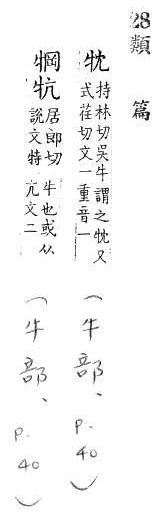 28類篇
持林切吳牛謂之又式荏切文一重音一(牛部、p.40)
犅牨居郎切說文特牛也或从亢文二(牛部、p.40)